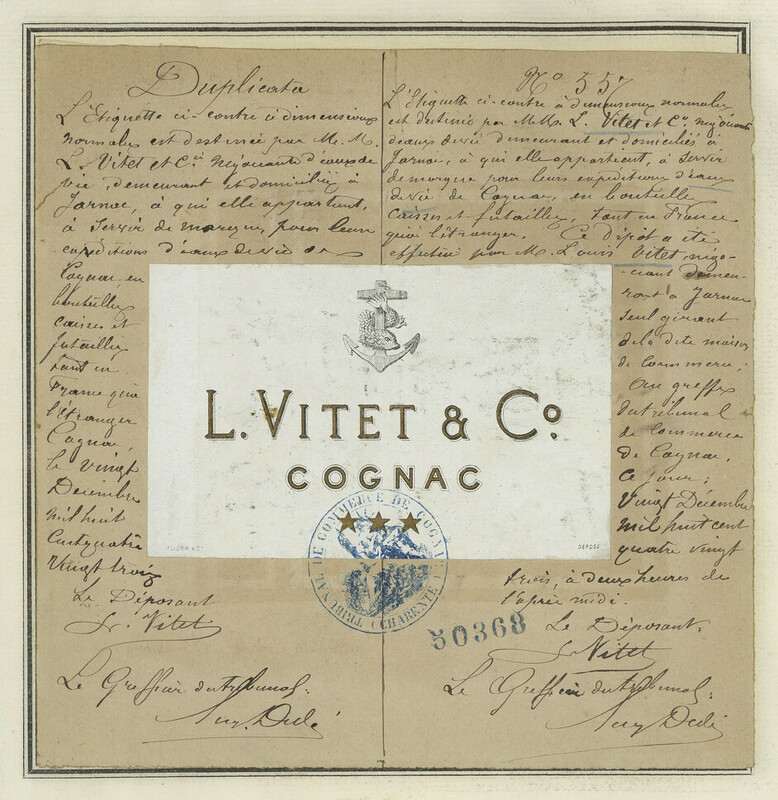 Duplicata
L'Etiquette ci-contre à dimensions
normales est destinée par M. M.
L. Vitet et Cie négociants d'eaux de
vie, demeurant et domiciliés à
Jarnac, à qui elle appartient,
à servir de marque pour leurs
expéditions d'eaux de vie de
Cognac, en
bouteilles
caisses et
futailles
tant en
France qu'à
l'étranger
Cognac,
le vingt
Décembre
mil huit
cent quatre
vingt trois
Le Déposant
L. Vitet
Le Greffier du tribunal.
No 357
L'Etiquette ci-contre à dimensions normales
est destinée par M.M. L. Vitet et Co, négociants
d'eaux de vie demeurant et domiciliés à
Jarnac, à qui elle appartient, à servir
de marque pour leurs expéditions d'eaux
de vie de Cognac, en bouteilles
caisses et futailles, tant en France
qu'à l'étranger. Ce dépôt a été
effectué par M. Louis Vitet, négo-
ciant demeu-
rant à Jarnac
seul gérant
de la dite maison
de commerce;
Au greffe
du tribunal
de commerce
de Cognac,
ce jour;
Vingt Décembre
mil huit cent
quatre vingt
trois, à deux heures de
l'après midi.
Le Déposant,
L. Vitet
Le Greffier du tribunal;
L. VITET & Co.
COGNAC
DÉPOSÉ
TRIBUNAL DE COMMERCE DE COGNAC (CHARENTE)
50368